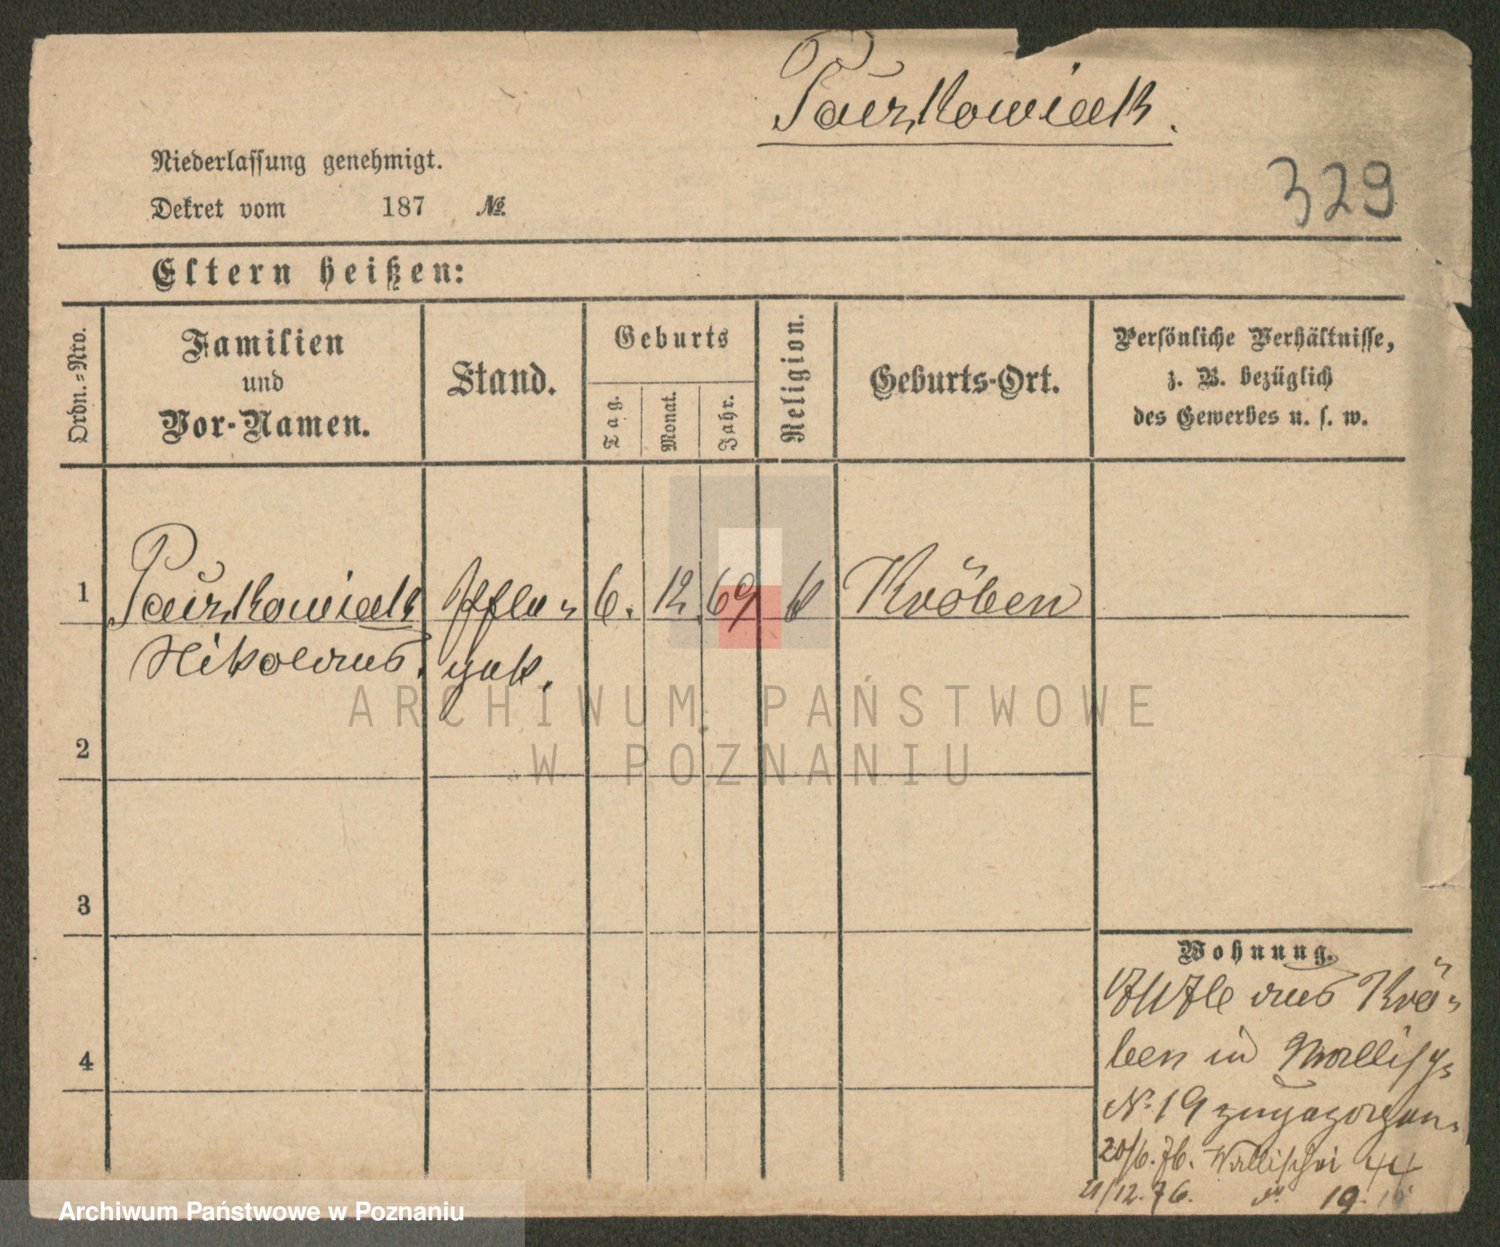 Paczkowiak.
329
Niederlassung genehmigt.
Dekret vom 187 №
Eltern heißen:
Ordn.-Nro.
Familien
und
Vor-Namen.
Stand.
Geburts
Tag.
Monat.
Jahr.
Religion.
Geburts-Ort.
Persönliche Verhältnisse,
z. B. bezüglich
des Gewerbes u. s. w.
1 Paczkowiak Pfle- 6. 12. 69 k Kröben
Nikolaus. gek.
2
3
4
Wohnung.
aus Krö-
ben in Wallisch-
N. 19 zugezogen.
20/6.76. Wallischei 44
21/12.76. 19.
ARCHIWUM PAŃSTWOWE
W POZNANIU
Archiwum Państwowe w Poznaniu